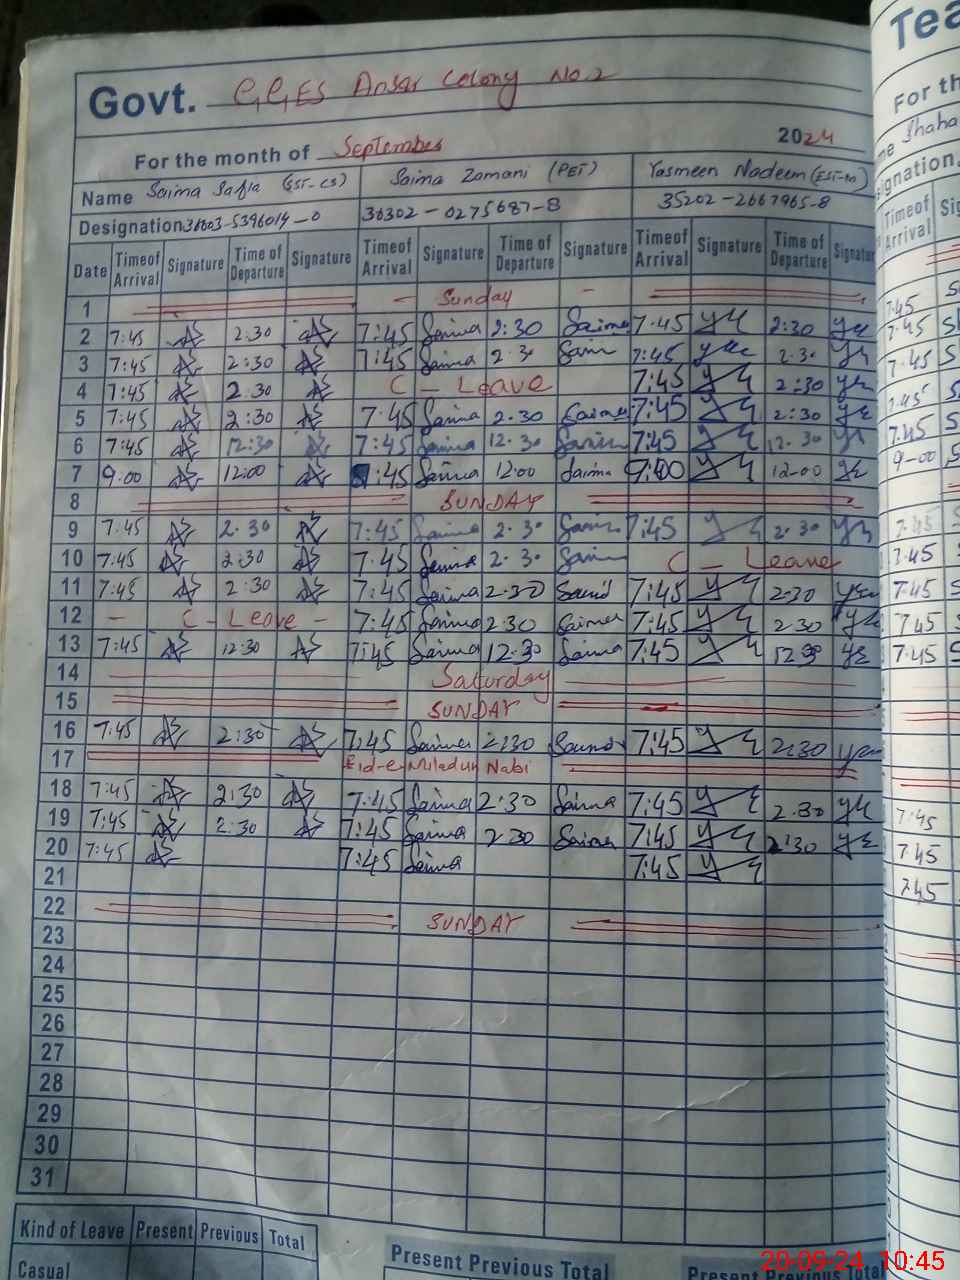 Govt. GGES Ansar Colony No.2
For the month of September 2024
Name Saima Safia (SST-CS) Saima Zamani (PET) Yasmeen Nadeem (EST-M)
Designation 36302-0275687-8 35202-2667965-8
Date Timeof Arrival Signature Time of Departure Signature Timeof Arrival Signature Time of Departure Signature Timeof Arrival Signature Time of Departure Signatur
1 - Sunday -
2 7:45 2:30 7:45 Saima 2:30 Saima 7.45 2:30
3 7:45 2:30 7:45 Saima 2.30 Saim 7:45 2.30
4 7:45 2.30 C - Leave 7:45 2:30
5 7:45 2:30 7:45 Saima 2.30 Saima 7:45 2:30
6 7:45 12:30 7:45 Saima 12.30 Saima 7:45 12.30
7 9:00 12:00 :45 Saima 12:00 Saima 9:00 12-00
8 SUNDAY
9 7.45 2.30 7:45 Saima 2.30 Saim 7:45 2.30
10 7:45 2:30 7.45 Saima 2.30 Saim C - Leave
11 7:45 2:30 7:45 Saima 2.30 7:45 2:30
12 - C - Leave - 7:45 Saima 2:30 Saima 7:45 2:30
13 7:45 12:30 7:45 Saima 12.30 Saima 7:45 12.30
14 Saturday
15 SUNDAY
16 7.45 2:30 7:45 Saima 2:30 7:45 2:30
17 Eid-e-Miladun Nabi
18 7:45 2:30 7:45 Saima 2:30 Saima 7:45 2.30
19 7:45 2:30 7:45 Saima 2:30 Saima 7:45 2:30
20 7:45 7:45 Saima 7:45
21
22 SUNDAY
23
24
25
26
27
28
29
30
31
Kind of Leave Present Previous Total
Casual
Present Previous Total
Present Previous Total
Tea
For th
Shaha
Timeof Arrival Sig
7:45
7.45
7.45
7:45
7:45
9-00
7:45
7.45
7:45
7.45
7:45
7:45
7:45
20-09-24 10:45